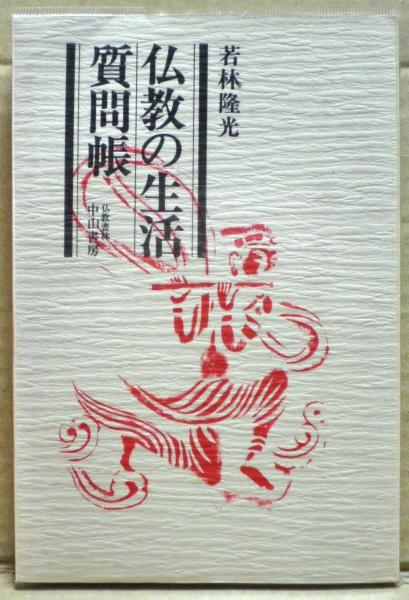 若林隆光
仏教の生活
質問帳
仏教書林
中山書房